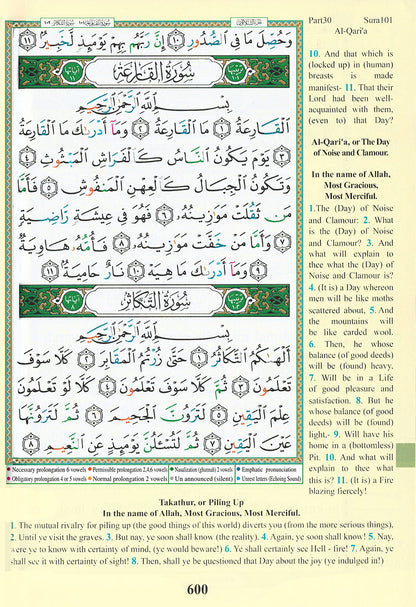 Part30 Sura101
Al-Qari'a
وَحُصِّلَ مَا فِي الصُّدُورِ ۝١٠ إِنَّ رَبَّهُم بِهِمْ يَوْمَئِذٍ لَّخَبِيرٌ ۝١١
سُورَةُ القَارِعَةِ
بِسْمِ اللَّهِ الرَّحْمَٰنِ الرَّحِيمِ
الْقَارِعَةُ ۝١ مَا الْقَارِعَةُ ۝٢ وَمَا أَدْرَاكَ مَا الْقَارِعَةُ
۝٣ يَوْمَ يَكُونُ النَّاسُ كَالْفَرَاشِ الْمَبْثُوثِ ۝٤
وَتَكُونُ الْجِبَالُ كَالْعِهْنِ الْمَنفُوشِ ۝٥ فَأَمَّا
مَن ثَقُلَتْ مَوَازِينُهُ ۝٦ فَهُوَ فِي عِيشَةٍ رَّاضِيَةٍ
۝٧ وَأَمَّا مَنْ خَفَّتْ مَوَازِينُهُ ۝٨ فَأُمُّهُ هَاوِيَةٌ
۝٩ وَمَا أَدْرَاكَ مَا هِيَهْ ۝١٠ نَارٌ حَامِيَةٌ ۝١١
سُورَةُ التَّكَاثُرِ
بِسْمِ اللَّهِ الرَّحْمَٰنِ الرَّحِيمِ
أَلْهَاكُمُ التَّكَاثُرُ ۝١ حَتَّىٰ زُرْتُمُ الْمَقَابِرَ ۝٢ كَلَّا سَوْفَ
تَعْلَمُونَ ۝٣ ثُمَّ كَلَّا سَوْفَ تَعْلَمُونَ ۝٤ كَلَّا لَوْ تَعْلَمُونَ
عِلْمَ الْيَقِينِ ۝٥ لَتَرَوُنَّ الْجَحِيمَ ۝٦ ثُمَّ لَتَرَوُنَّهَا
عَيْنَ الْيَقِينِ ۝٧ ثُمَّ لَتُسْأَلُنَّ يَوْمَئِذٍ عَنِ النَّعِيمِ ۝٨
Necessary prolongation 6 vowels Permissible prolongation 2,4,6 vowels Nazalization (ghunnah) 2 vowels Emphatic pronunciation
Obligatory prolongation 4 or 5 vowels Normal prolongation 2 vowels Un announced (silent) Unrest letters (Echoing Sound)
10. And that which is
(locked up) in (human)
breasts is made
manifest- 11. That their
Lord had been well-
acquainted with them,
(even to) that Day?
Al-Qari'a, or The Day
of Noise and Clamour.
In the name of Allah,
Most Gracious,
Most Merciful.
1.The (Day) of Noise
and Clamour: 2. What
is the (Day) of Noise
and Clamour? 3. And
what will explain to
thee what the (Day) of
Noise and Clamour is?
4. (It is) a Day whereon
men will be like moths
scattered about, 5. And
the mountains will
be like carded wool.
6. Then, he whose
balance (of good deeds)
will be (found) heavy.
7. Will be in a Life
of good pleasure and
satisfaction. 8. But he
whose balance (of good
deeds) will be (found)
light,- 9. Will have his
home in a (bottomless)
Pit. 10. And what will
explain to thee what
this is? 11. (It is) a Fire
blazing fiercely!
Takathur, or Piling Up
In the name of Allah, Most Gracious, Most Merciful.
1. The mutual rivalry for piling up (the good things of this world) diverts you (from the more serious things).
2. Until ye visit the graves. 3. But nay, ye soon shall know (the reality). 4. Again, ye soon shall know! 5. Nay,
were ye to know with certainty of mind, (ye would beware!) 6. Ye shall certainly see Hell - fire! 7. Again, ye
shall see it with certainty of sight! 8. Then, shall ye be questioned that Day about the joy (ye indulged in!)
600